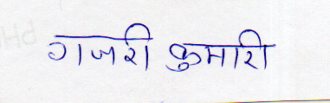 गजरी कुमारी